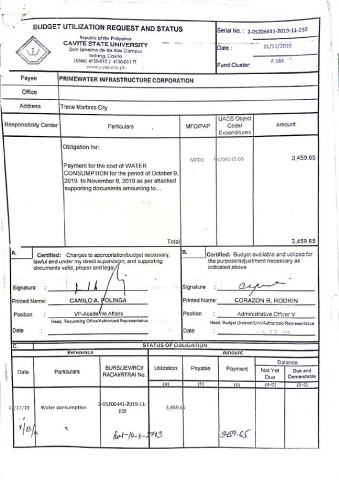 BUDGET UTILIZATION REQUEST AND STATUS
Republic of the Philippines
CAVITE STATE UNIVERSITY
Don Severino de las Alas Campus
Indang, Cavite
www.cvsu.edu.ph
Serial No. : 2-05206441-2019-11-232
Date : 11/12/2019
Fund Cluster: F 164
Payee PRIMEWATER INFRASTRUCTURE CORPORATION
Office
Address Trece Martires City
Responsibility Center Particulars MFO/PAP UACS Object Code/ Expenditures Amount
Obligation for:
Payment for the cost of WATER
CONSUMPTION for the period of October 9,
2019 to November 8, 2019 as per attached
supporting documents amounting to...
MFO1
3,459.65
Total 3,459.65
A.
Certified: Charges to appropriation/budget necessary,
lawful and under my direct supervision; and supporting
documents valid, proper and legal
Signature :
Printed Name: CAMILO A. POLINGA
Position : VP-Academic Affairs
Head, Requesting Office/Authorized Representative
Date :
B.
Certified: Budget available and utilized for
the purpose/adjustment necessary as
indicated above
Signature :
Printed Name: CORAZON R. RODRIN
Position : Administrative Officer V
Head, Budget Division/Unit/Authorized Representative
Date :
C. STATUS OF OBLIGATION
Reference Amount
Date Particulars BURS/JEV/RCI/ RADAI/RTRAI No. Utilization Payable Payment Balance
Not Yet Due Due and Demandable
(a) (b) (c) (a-b) (b-c)
Water consumption 2-05206441-2019-11-232 3,459.65
3459.65